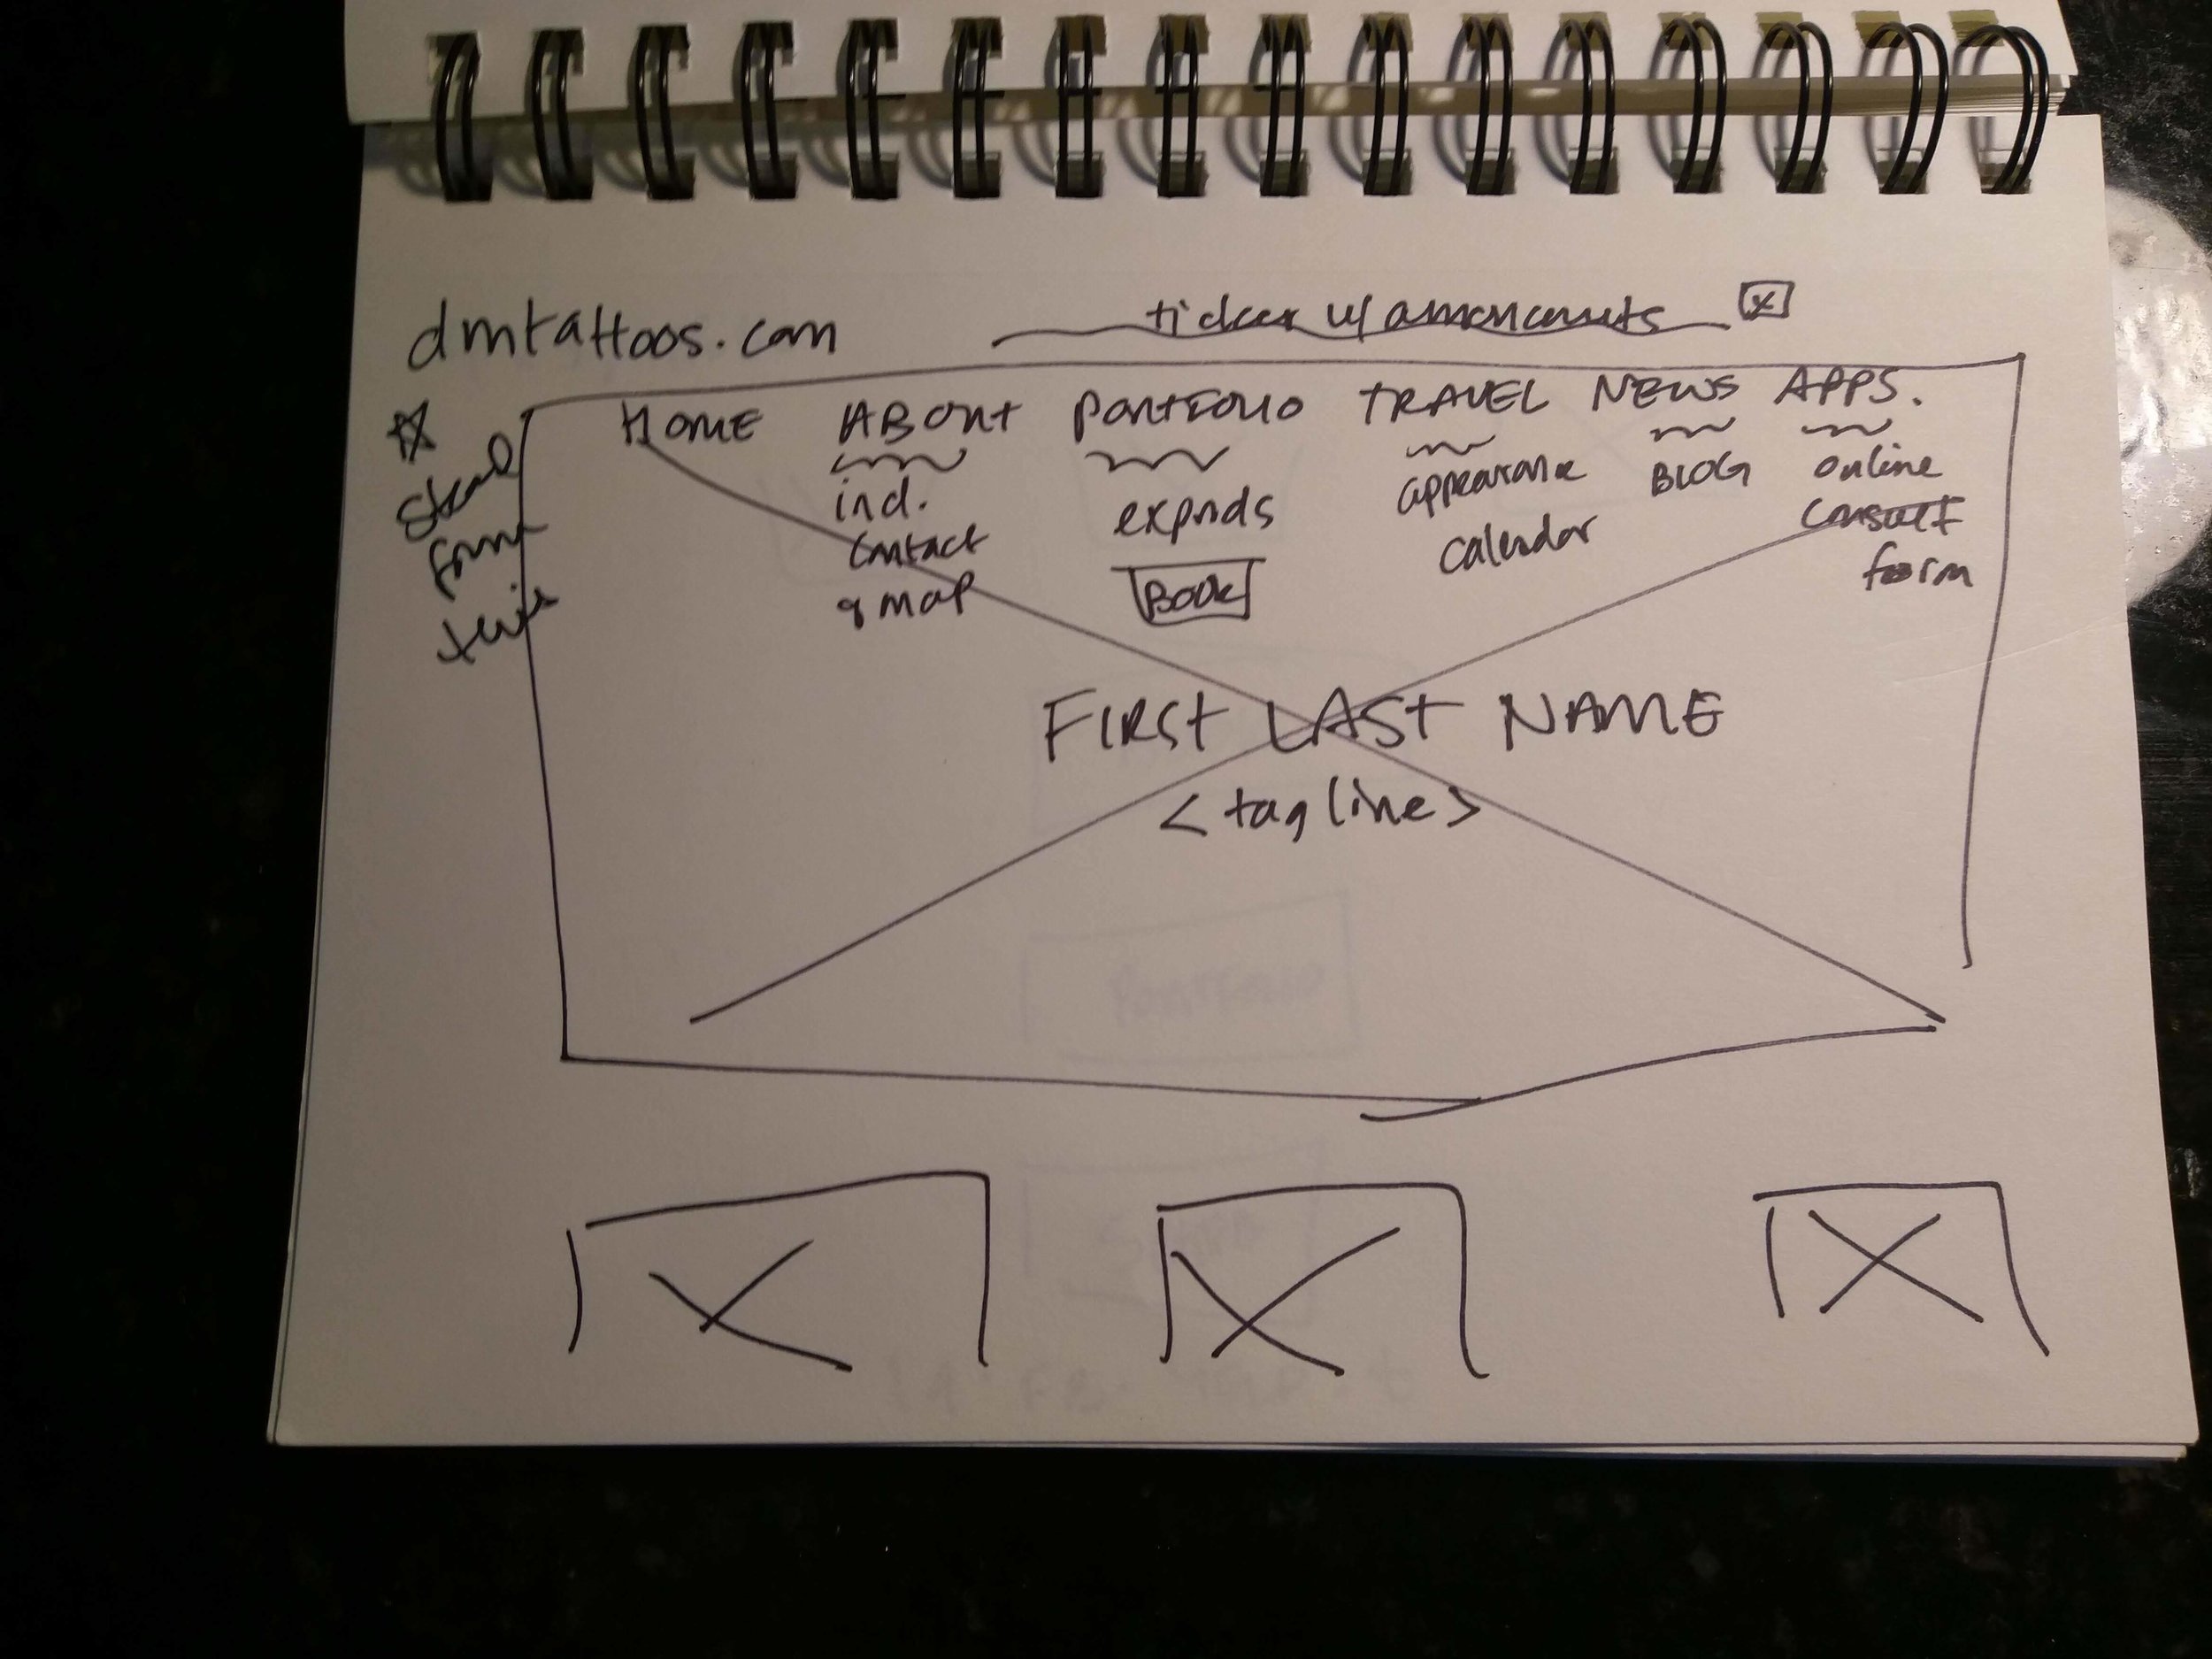 dmtattoos.com
ticker w/ announcements X
HOME ABOUT PORTFOLIO TRAVEL NEWS APPS.
ind.
contact
& map
expnds
BOOK
appearance
calendar
BLOG
online
consult
form
steal
from
this
FIRST LAST NAME
<tagline>
PORTFOLIO